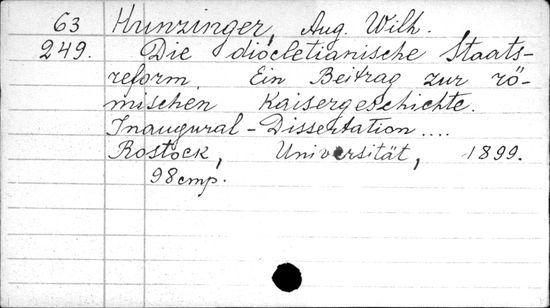 63 Hunzinger, Aug. Wilh.
249. Die diocletianische Staats-
reform. Ein Beitrag zur rö-
mischen Kaisergeschichte.
Inaugural-Dissertation....
Rostock, Universität, 1899.
98cmp.